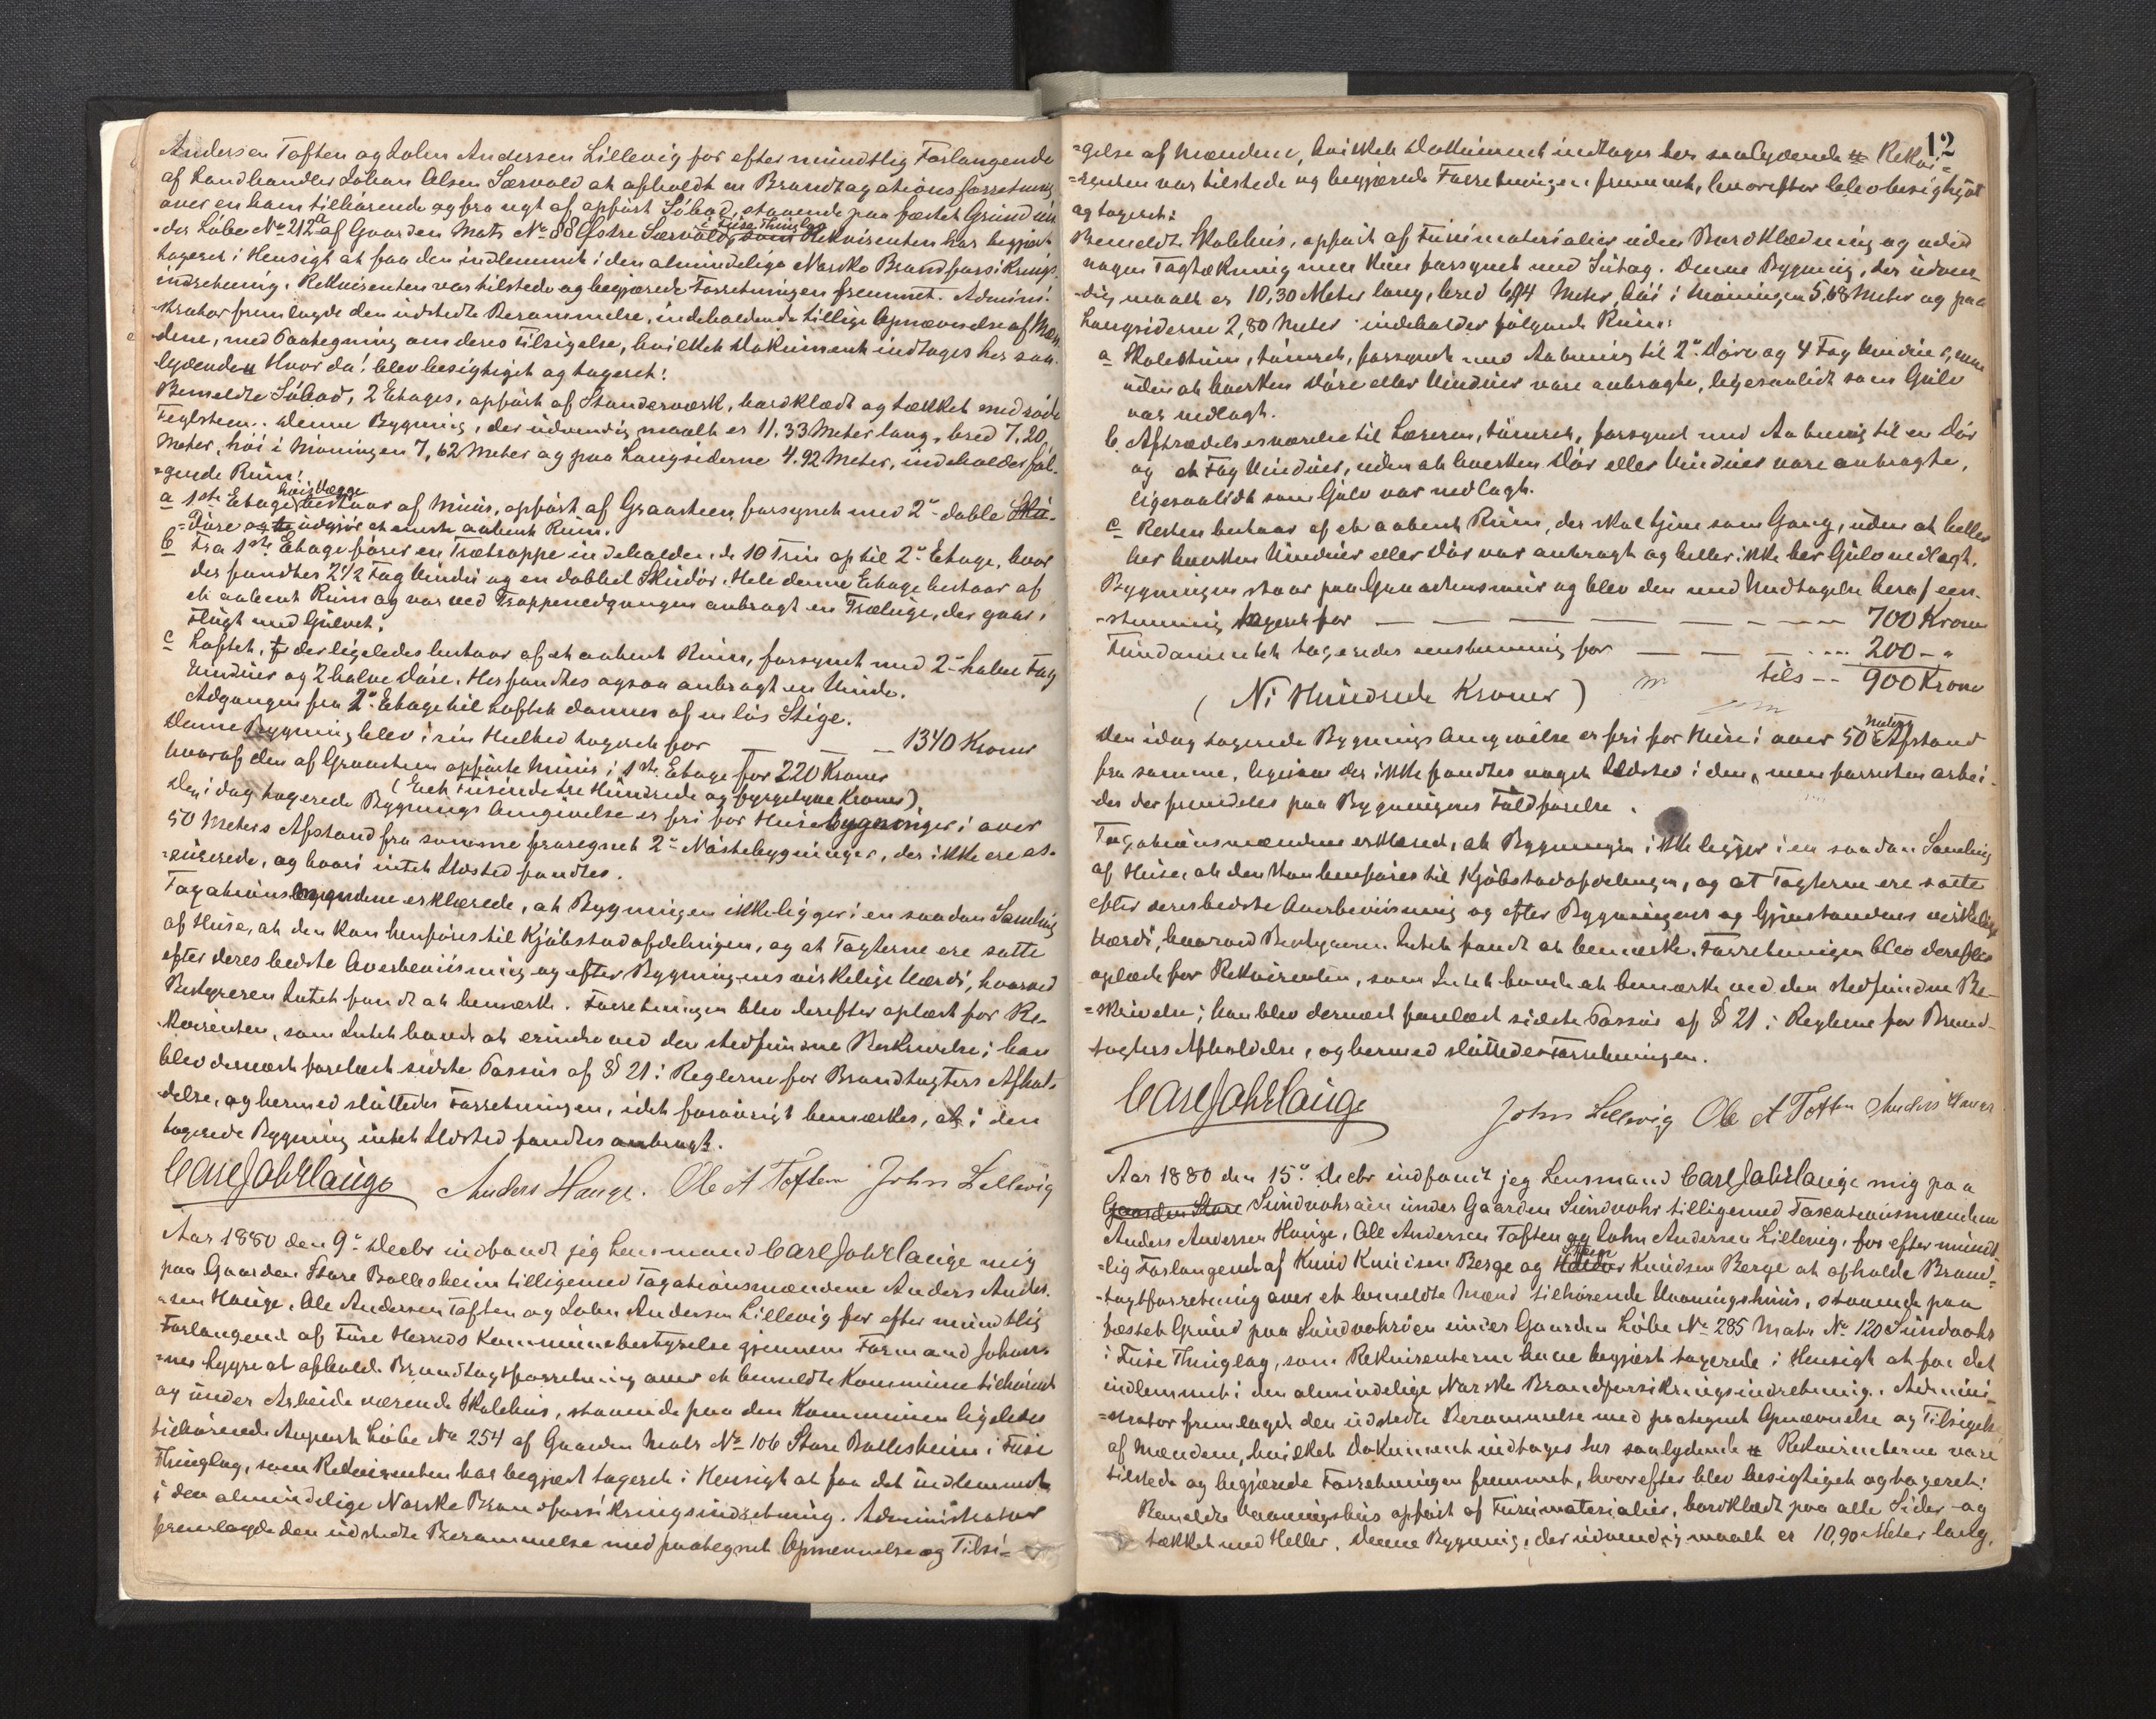 Andersen Toften og John Andersen Lillevig for efter mundtlig Forlangende
af Landhandler Johan Olsen Sævold at afholdt en Brandtaxationsforretning
over en ham tilhørende og fra nyt af opført Søbod, staaende paa fæstet Grund un-
der Løbe No 212a af Gaarden Matr No 88 Østre Sævold, i Fuse Thinglag som Rekvirenten har begjært
taxeret i Hensigt at faa den indlemmet i den almindelige Norske Brandforsikrings-
indretning. Rekvirenten var tilstede og begjærede Forretningen fremmet. Admini-
strator fremlagde den udstedte Berammelse, indeholdende tillige Opnævnelse af Mæn-
dene, med Paategning om deres Tilsigelse, hvilket Dokument indtages her saa-
lydende # Hvorda! blev besigtiget og taxeret:
Bemeldte Søbod, 2 Etages, opført af Standerværk, bordklædt og tækket med røde
Teglsteen. Denne Bygning, der udvendig maalt er 11.33 Meter lang, bred 7,20
Meter, høi i Møningen 7,62 Meter og paa Langsiderne 4.92 Meter, indeholder føl-
gende Rum:
a 1ste Etage hvis Vægge bestaar af Muur, opført af Graasteen, forsynet med 2de doble Sku-
døre og udgjør et eneste aabent Rum.
b Fra 1ste Etage fører en Trætrappe indeholdende 10 Trin op til 2den Etage, hvor
der fandtes 2 1/2 Fag Vindu og en dobbel Skudør. Hele denne Etage bestaar af
et aabent Rum og var ved Trappenedgangen anbragt en Træluge, der gaar i
Flugt med Gulvet.
c Loftet, der ligeledes bestaar af et aabent Rum, forsynet med 2de halve Fag
Vinduer og 2 halve Døre. Her fandtes ogsaa anbragt en Vinde.
Adgangen fra 2den Etage til Loftet dannes af en løs Stige.
Denne Bygning blev i sin Helhed taxeret for — — — 1340 Kroner
hvoraf den af Graasteen opførte Muur i 1ste Etage for 220 Kroner
(Eet Tusinde tre Hundrede og fyrgetyve Kroner).
Den i dag taxerede Bygnings Angivelse er fri for Husebygninger i over
50 Meters Afstand fra samme fraregnet 2de Nøstebygninger, der ikke ere as-
surerede, og hvori intet Ildsted fandtes.
Taxationsmændene erklærede, at Bygningen ikke ligger i en saadan Samling
af Huse, at den kan henføres til Kjøbstadafdelingen, og at Taxterne ere satte
efter deres bedste Overbeviisning og efter Bygningens virkelige Værdi, hvorved
Bestyreren Intet fandt at bemærke. Forretningen blev derefter oplæst for Re-
kvirenten, som Intet havde at erindre ved den stedfundne Beskrivelse; han
blev dernæst forelæst sidste Passus af § 21 i Reglerne for Brandtaxters Afhol-
delse, og hermed sluttedes Forretningen, idet forøvrigt bemærkes, at i den
taxerede Bygning intet Ildsted fandtes anbragt.
Carl Joh Hauge Anders Hauge. Ole A Toften John Lillevig
Aar 1880 den 9de Decbr indfandt jeg Lensmand Carl Joh Hauge mig
paa Gaarden Store Bollesheim tilligemed Taxationsmændene Anders Ander-
sen Hauge, Ole Andersen Toften og John Andersen Lillevig for efter mundtlig
Forlangende af Fuse Herreds Kommunebestyrelse gjennem Formand Johan-
nes Lygre at afholde Brandtaxtforretning over et bemeldte Kommune tilhørende
og under Arbeide værende Skolehus, staaende paa den Kommunen ligeledes
tilhørende Anpart Løbe No 254 af Gaarden Matr No 106 Store Bollesheim i Fuse
Thinglag, som Rekvirenten har begjært taxeret i Hensigt at faa det indlemmet
i den almindelige Norske Brandforsikringsindretning. Administrator
fremlagde den udstedte Berammelse med paategnet Opnævnelse og Tilsi-
12
gelse af Mændene, hvilket Dokument indtages her saalydende # Rekvi-
renten var tilstede og begjærede Forretningen fremmet, hvorefter blev besigtiget
og taxeret:
Bemeldte Skolehus, opført af Furumaterialier uden Bordklædning og uden
nogen Tagtækning men kun forsynet med Sutag. Denne Bygning, der udven-
dig maalt er 10,30 Meter lang, bred 6,94 Meter, høi i Møningen 5,68 Meter og paa
Langsiderne 2,80 Meter indeholder følgende Rum:
a Skolestuen, tømret, forsynet med Aabning til 2de Døre og 4 Fag Vinduer, men
uden at hverken Døre eller Vinduer vare anbragte, ligesaalidt som Gulv
var nedlagt.
b. Aftrædelsesværelse til Læreren, tømret, forsynet med Aabning til en Dør
og et Fag Vinduer, uden at hverken Dør eller Vinduer vare anbragte,
ligesaalidt som Gulv var nedlagt.
c Resten bestaar af et aabent Rum, der skal tjene som Gang, uden at heller
her hverken Vinduer eller Dør var anbragt og heller ikke her Gulv nedlagt.
Bygningen staar paa Graasteensmuur og blev den med Undtagelse heraf een-
stemmig taxeret for — — — — — 700 Kroner
Fundamentet taxeredes eenstemmig for — — — 200 - "
tils -- 900 Kroner
(Ni Hundrede Kroner)
Den idag taxerede Bygnings Angivelse er fri for Huse i over 50 Meters Afstand
fra samme, ligesom der ikke fandtes noget Ildsted i den, men forresten arbei-
des der fremdeles paa Bygningens Fuldførelse.
Taxationsmændene erklæred, at Bygningen ikke ligger i en saadan Samling
af Huse, at den kan henføres til Kjøbstadafdelingen, og at Taxterne ere satte
efter deres bedste Overbeviisning og efter Bygningens og Gjenstandens virkelige
Værdi, hvorved Bestyreren Intet fandt at bemærke. Forretningen blev derefter
oplæst for Rekvirenten, som Intet havde at bemærke ved den stedfundne Be-
skrivelse; han blev dernæst forelæst sidste Passus af § 21 i Reglerne for Brand-
taxters Afholdelse, og hermed sluttedes Forretningen.
Carl Joh Hauge John Lillevig Ole A Toften Anders Hauge
Aar 1880 den 15de Decbr indfandt jeg Lensmand Carl Joh Hauge mig paa
Gaarden Store Sundvohrøen under Gaarden Sundvohr tilligemed Taxationsmændene
Anders Andersen Hauge, Ole Andersen Toften og John Andersen Lillevig, for efter mundt-
lig Forlangende af Knud Knudsen Berge og Knudsen Berge at afholde Brand-
taxtforretning over et bemeldte Mænd tilhørende Vaaningshuus, staaende paa
fæstet Grund paa Sundvohrøen under Gaarden Løbe No 285 Matr No 120 Sundvohr
i Fuse Thinglag, som Rekvirenterne have begjært taxerede i Hensigt at faa det
indlemmet i den almindelige Norske Brandforsikringsindretning. Admini-
strator fremlagde den udstedte Berammelse med paategnet Opnævnelse og Tilsigelse
af Mændene, hvilket Dokument indtages her saalydende # Rekvirenterne vare
tilstede og begjærede Forretningen fremmet, hvorefter blev besigtiget og taxeret:
Bemeldte Vaaningshus opført af Furumaterialier, bordklædt paa alle Sider og
tækket med Heller. Denne Bygning, der udvendig maalt er 10,90 Meter lang,